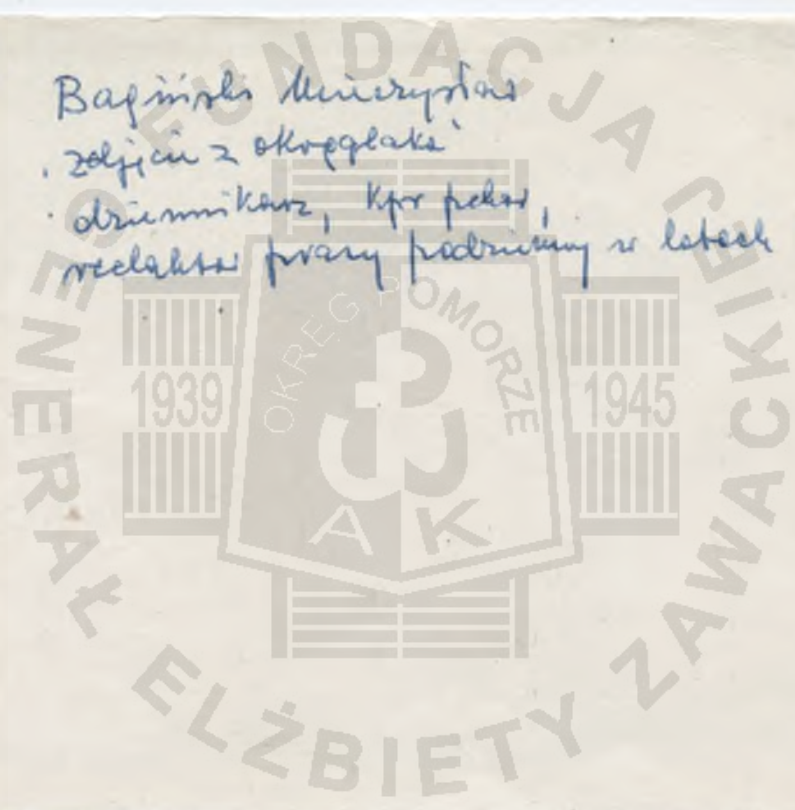 Bagiński Mieczysław
. zdjęcie z okręglaka
. dziennikarz, kpr pchor,
redaktor prasy podziemnej w latach
FUNDACJA GENERAŁ ELŻBIETY ZAWACKIEJ
OKRĘG POMORZE
1939
1945
AK